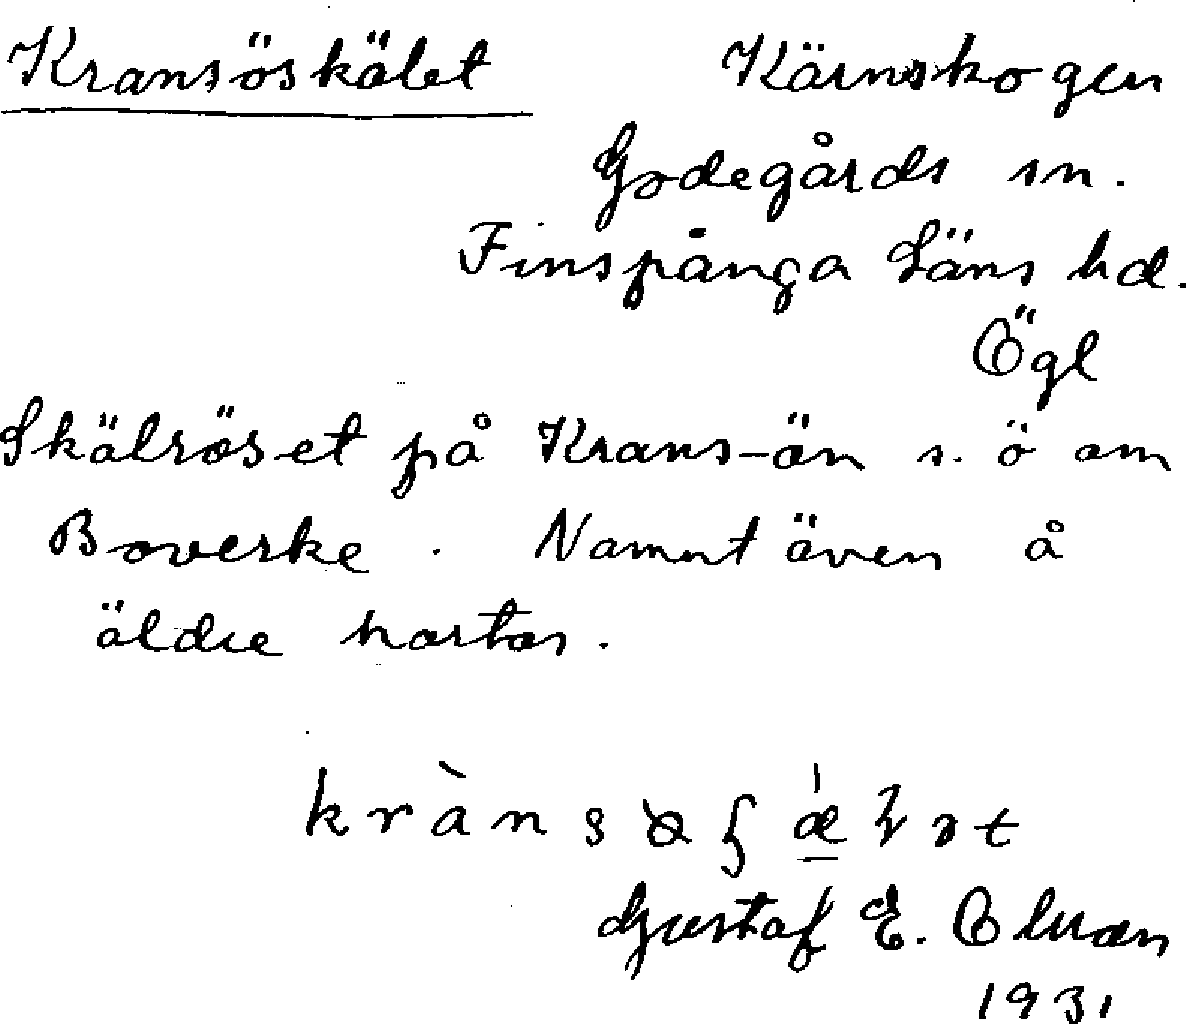 Kransöskälet Kärnskogen
Godegårds sn.
Finspånga Läns hd.
Ögl
Skälröset på Krans-ön s. ö om
Boverke. Namnt även å
äldre kartor.
Gustaf E.
1931